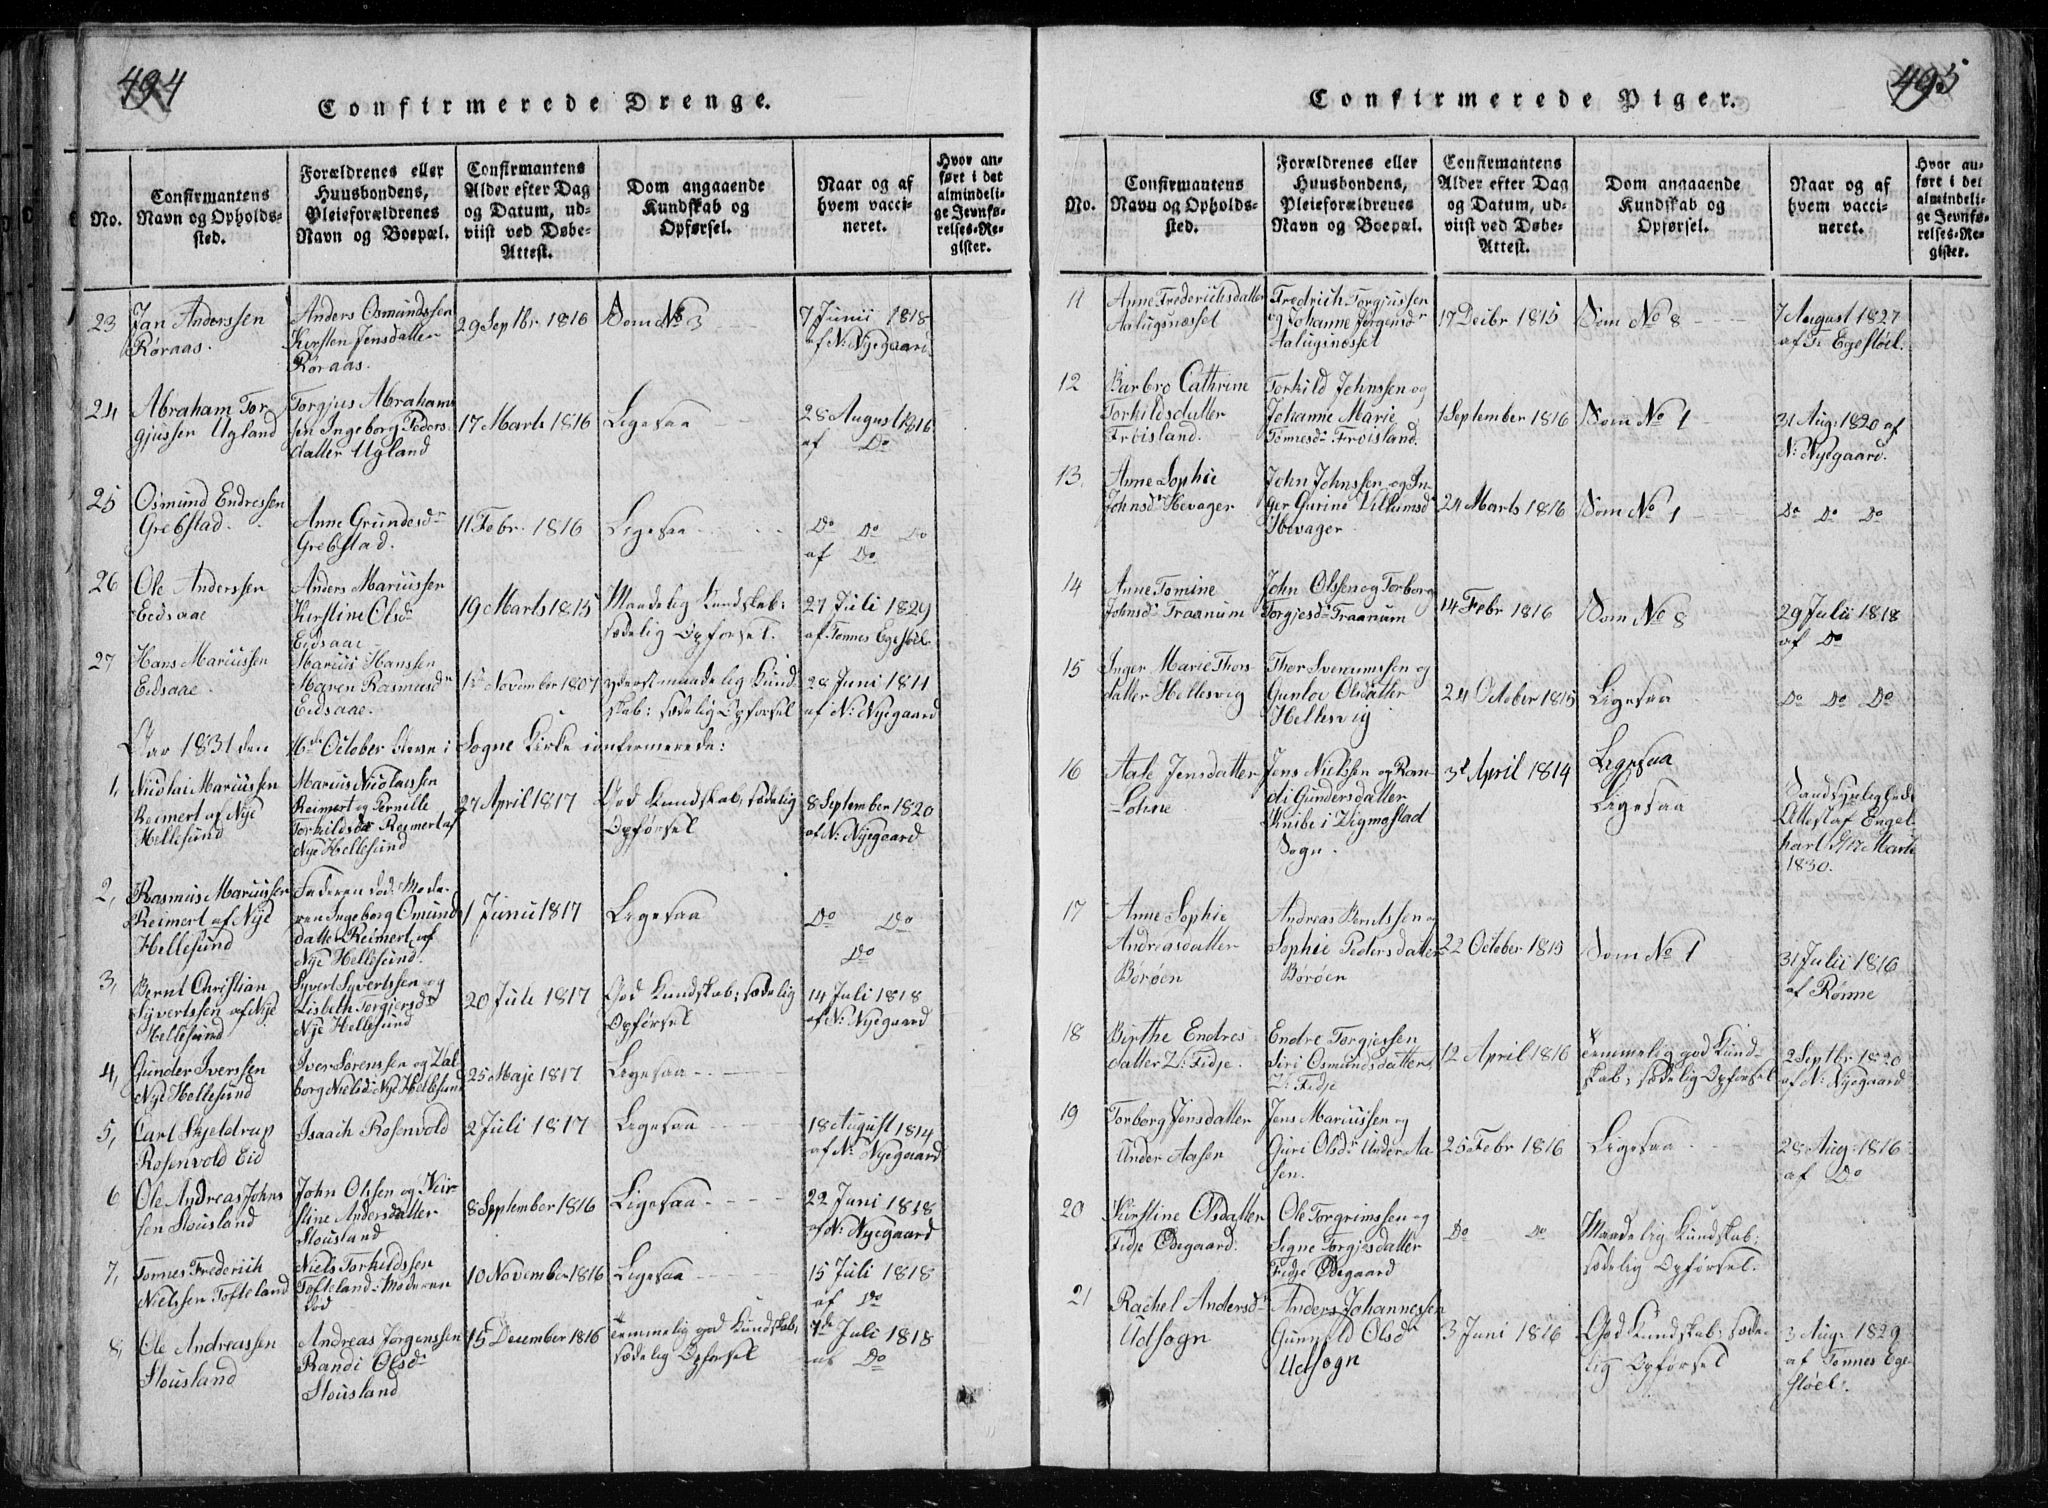 494
Confirmerede Drenge.
No.
Confirmantens
Navn og Opholds-
sted.
Forældrenes eller
Huusbondens,
Pleieforældrenes
Navn og Boepæl.
Confirmantens
Alder efter Dag
og Datum, ud-
viist ved Døbe-
Attest.
Dom angaaende
Kundskab og
Opførsel.
Naar og af
hvem vacci-
neret.
Hvor an-
ført i det
almindeli-
ge Jevnfø-
relses-Re-
gister.
23
Jan Anderssen
Røraas.
Anders Osmundssen
Kirsten Jensdatter
Røraas.
29 Septbr. 1816
Som No 3
7 Junii 1818
af N. Nyegaard
24
Abraham Tor
gjussen Ugland
Torgjus Abraham
sen Ingeborg Peders
datter Ugland
17 Marts 1816
Ligesaa
28 August 1816
af Do
25
Osmund Endressen
Grebstad.
Anne Grundesd
Grebstad.
11 Febr. 1816
Ligesaa
Do Do Do
af Do
26
Ole Anderssen
Eidsaae
Anders Mariussen
Kirstine Olsd
Eidsaae
19 Marts 1815
Maadelig Kundskab:
sædelig Opførsel.
27 Juli 1829
af Tønnes Egestøel
27
Hans Mariussen
Eidsaae.
Marius Hanssen
Maren Rasmusd
Eidsaae.
1 November 1807
yderst maadelig Kund
skab: sædelig Opførsel
28 Juni 1811
af N. Nyegaard
Aar 1831 den October blev i Sogne Kirke confirmerede:
1,
Nicolai Mariussen
Reimert af Nye
Hellesund
Marius Nicolaissen
Reimert og Pernille
Torkildsd Reimert af
Nye Hellesund
27 April 1817
God Kundskab, sædelig
Opførsel
8 September 1820
af N. Nyegaard
2,
Rasmus Mariussen
Reimert af Nye
Hellesund
Faderen død. Mode-
ren Ingeborg Omund
datter Reimert af
Nye Hellesund.
1 Junii 1817
Ligesaa
Do Do
Do
3,
Bernt Christian
Syvertssen af Nye
Hellesund
Syvert Syvertssen og
Lisbeth Torgjersd
Nye Hellesund
20 Juli 1817
God Kundskab; sædelig
Opførsel
14 Juli 1818
af N. Nyegaard
4,
Gunder Iverssen
Nye Hellesund
Iver Sørenssen og Val
borg Nielsd. Nye Hellesund
25 Maje 1817
Ligesaa
5,
Carl Skjeldrup
Rosenvold Eid
Isaach Rosenvold
2 Juli 1817
Ligesaa
18 August 1814
af N. Nyegaard
6
Ole Andreas Johns
sen Stousland
John Olssen og Kir-
stine Andersdatter
Stousland
8 September 1816
Ligesaa
22 Juni 1818
af N. Nyegaard
7,
Tønnes Frederich
Nielssen Tofteland
Niels Torkildssen
Tofteland. Moderen
død
10 November 1816
Ligesaa
15 Juli 1818
af Do
8,
Ole Andreassen
Stousland
Andreas Jørgenssen
Randi Olsd
Stousland
15 December 1816
temmelig god Kundskab,
sædelig Opførsel
7de Juli 1818
af Do
495
Confirmerede Piger.
No.
Confirmantens
Navn og Opholds-
sted.
Forældrenes eller
Huusbondens,
Pleieforældrenes
Navn og Boepæl.
Confirmantens
Alder efter Dag
og Datum, ud-
viist ved Døbe-
Attest.
Dom angaaende
Kundskab og
Opførsel.
Naar og af
hvem vacci-
neret.
Hvor an-
ført i det
almindeli-
ge Jevnfø-
relses-Re-
gister.
11
Anne Frederichsdatter
Aalugsnæsset
Fredrich Torgjussen
og Johanne Jørgensd
Aalugsnæsset
17 Decbr 1815
Som No 8
7 August 1827
af T. Egestøel.
12
Barbro Cathrine
Torkildsdatter
Frøisland.
Torkild Johnssen og
Johanne Marie
Tønnesd. Frøisland.
1 September 1816
Som No 1
31 Aug. 1820 af
N. Nyegaard.
13.
Anne Sophie
Johnsd. Høevager
John Johnssen og In-
ger Gurine Villumsd
Høevager
24 Marts 1816
Som No 1
Do Do Do
14
Anne Tomine
Johnsd. Traanum
John Olssen og Torborg
Torgjesd. Traanum
14 Febr 1816
Som No 8
29 Julii 1818
af Do
15
Inger Marie Thors
datter Hellesvig
Thor Svenumssen og
Gunloe Olsdatter
Hellesvig
24 October 1815
Ligesaa
Do Do Do
16
Aale Jensdatter
Lohne
Jens Nielssen og Ran-
di Gundersdatter
Knibe i Vigmostad
Sogn.
3d April 1814
Ligesaa
Ligesaa
Sandsynligheds
Attest af Engel
hart Marts
1830.
17
Anne Sophie
Andreasdatter
Borøen
Andreas Berntssen og
Sophie Pedersdatter
Borøen
22 October 1815
Som No 1
31 Julii 1816
af Rønne
18
Birthe Endres
datter V. Fidje.
Endre Torgjerssen
Siri Osmundsdatter
V. Fidje
12 April 1816
temmelig god Kund-
skab, sædelig Opførsel
2 Septbr 1820
af N. Nyegaard
19
Torborg Jensdatter
Under Aasen
Jens Mariussen og
Guri Olsd. Under Aa-
sen.
25 Febr 1816
Ligesaa
28 Aug. 1816
af Do
20
Kirstine Olsdatter
Fidje Ødegaard.
Ole Torgrimssen og
Signe Torgjesdatter
Fidje Ødegaard
Do Do
Maadelig Kundskab;
sædelig Opførsel.
21
Rachel Andersd
Udsogn
Anders Johannessen
Gunvold Olsd
Udsogn
3 Juni 1816
God Kundskab; sæde-
lig Opførsel
3 Aug. 1829
af Tønnes Ege-
støel.